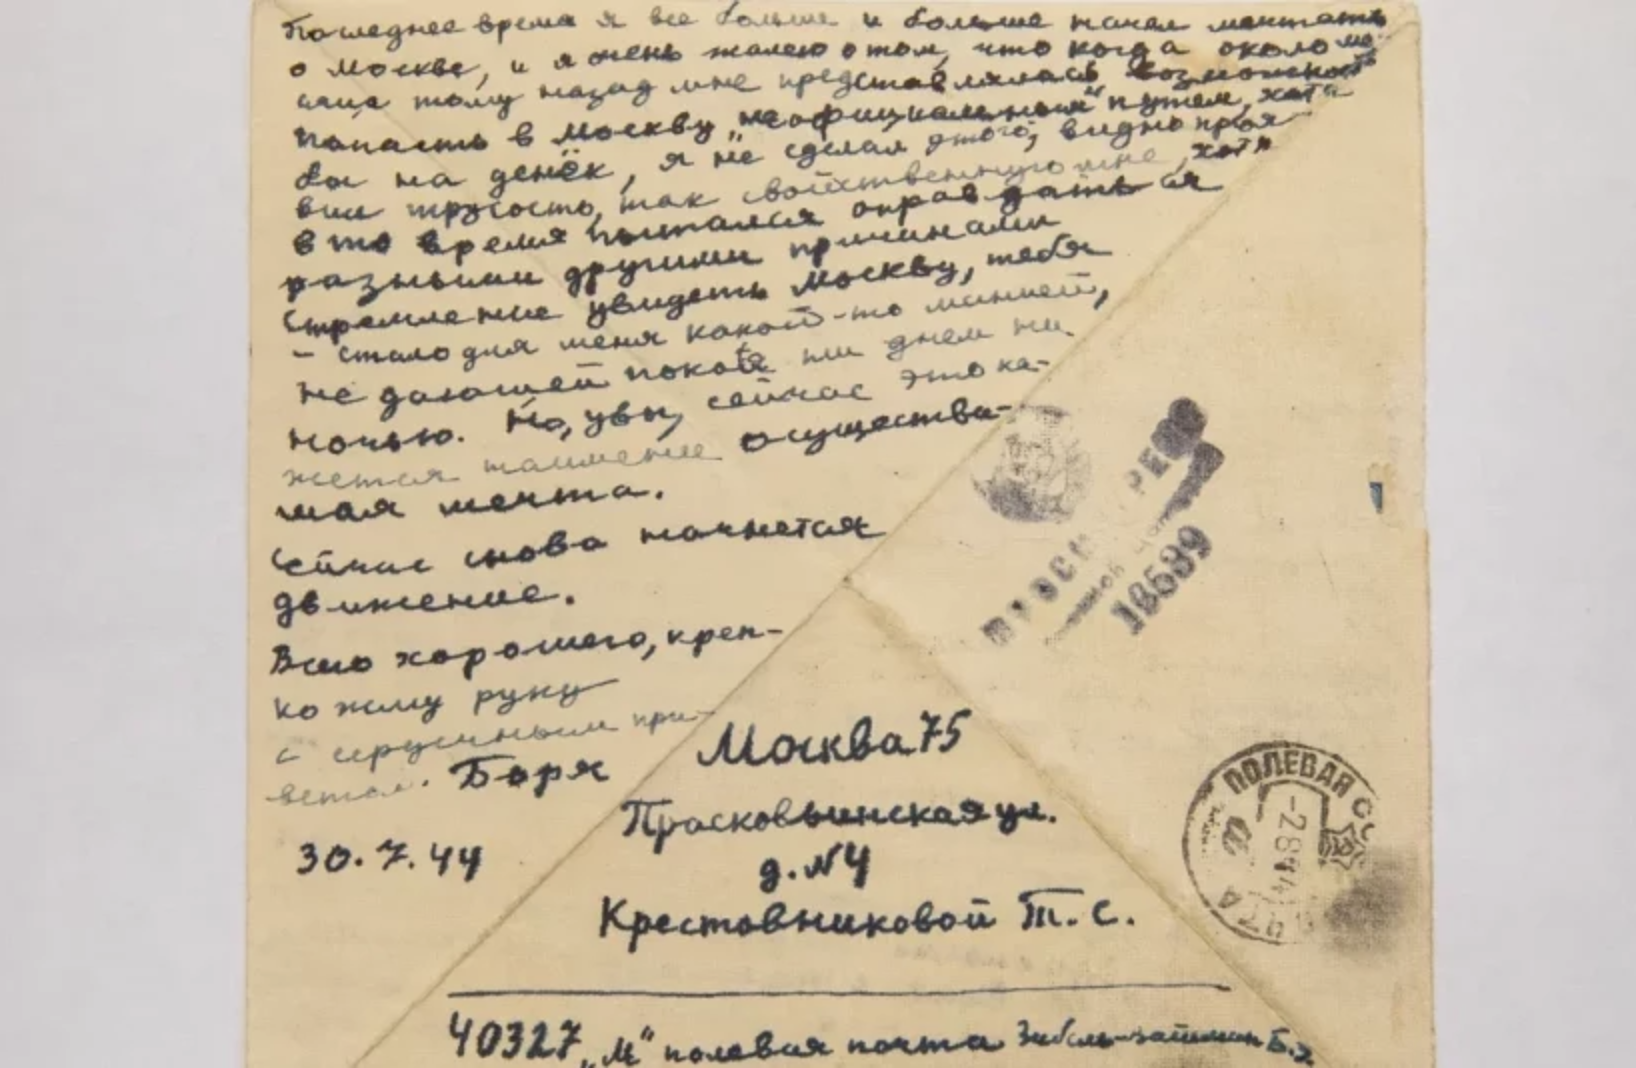 Последнее время я все больше и больше начал мечтать
о Москве, и я очень жалею о том, что когда около ме-
сяца тому назад мне представлялась возможность
попасть в Москву „неофициальным" путем, хотя
бы на денёк, я не сделал этого, видно проя-
вил трусость, так свойственную мне, хотя
в то время пытался оправдаться
разными другими причинами
Стремление увидеть Москву, тебя
– стало для меня какой-то манией,
не дающей покоя ни днем ни
ночью. Но, увы, сейчас это ка-
жется наименее осуществи-
мая мечта.
Сейчас снова начнется
движение.
Всего хорошего, креп-
ко жму руку
с
ветом. Боря
30.7.44
Москва 75
Прасковьинская ул.
д. №4
Крестовниковой Т. С.
40327 „М" полевая почта Б.
18589
ПОЛЕВАЯ